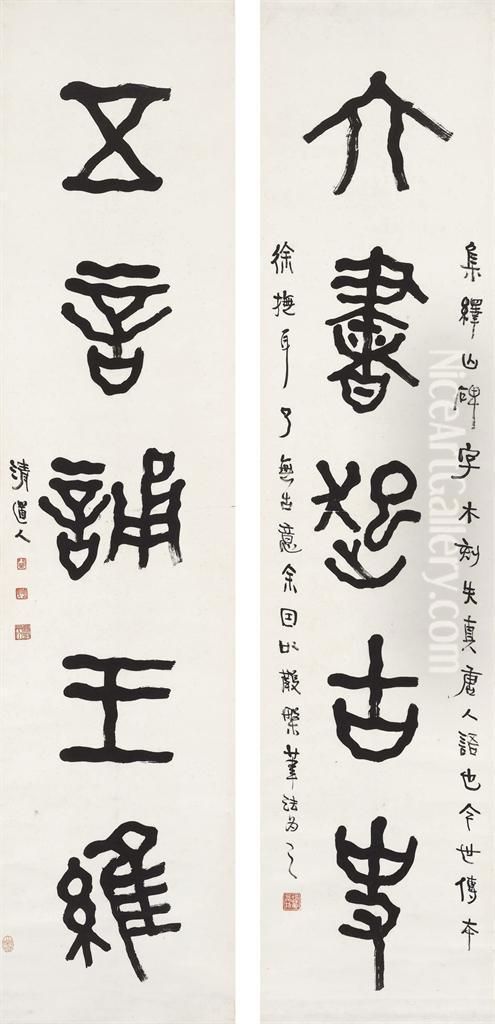 六書起古史
集繹山碑字木刻失真唐人語也今世傳本
徐撫耳了無古意余因以散槃筆法為之
五言誦王維
清道人
NiceArtGallery.com